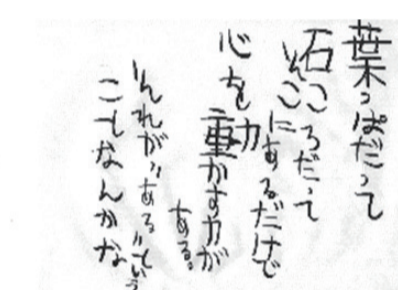 葉っぱだって
石ころだって
そこにあるだけで
心を動かす力が
ある。
それが〝ある〟という
ことなんかな